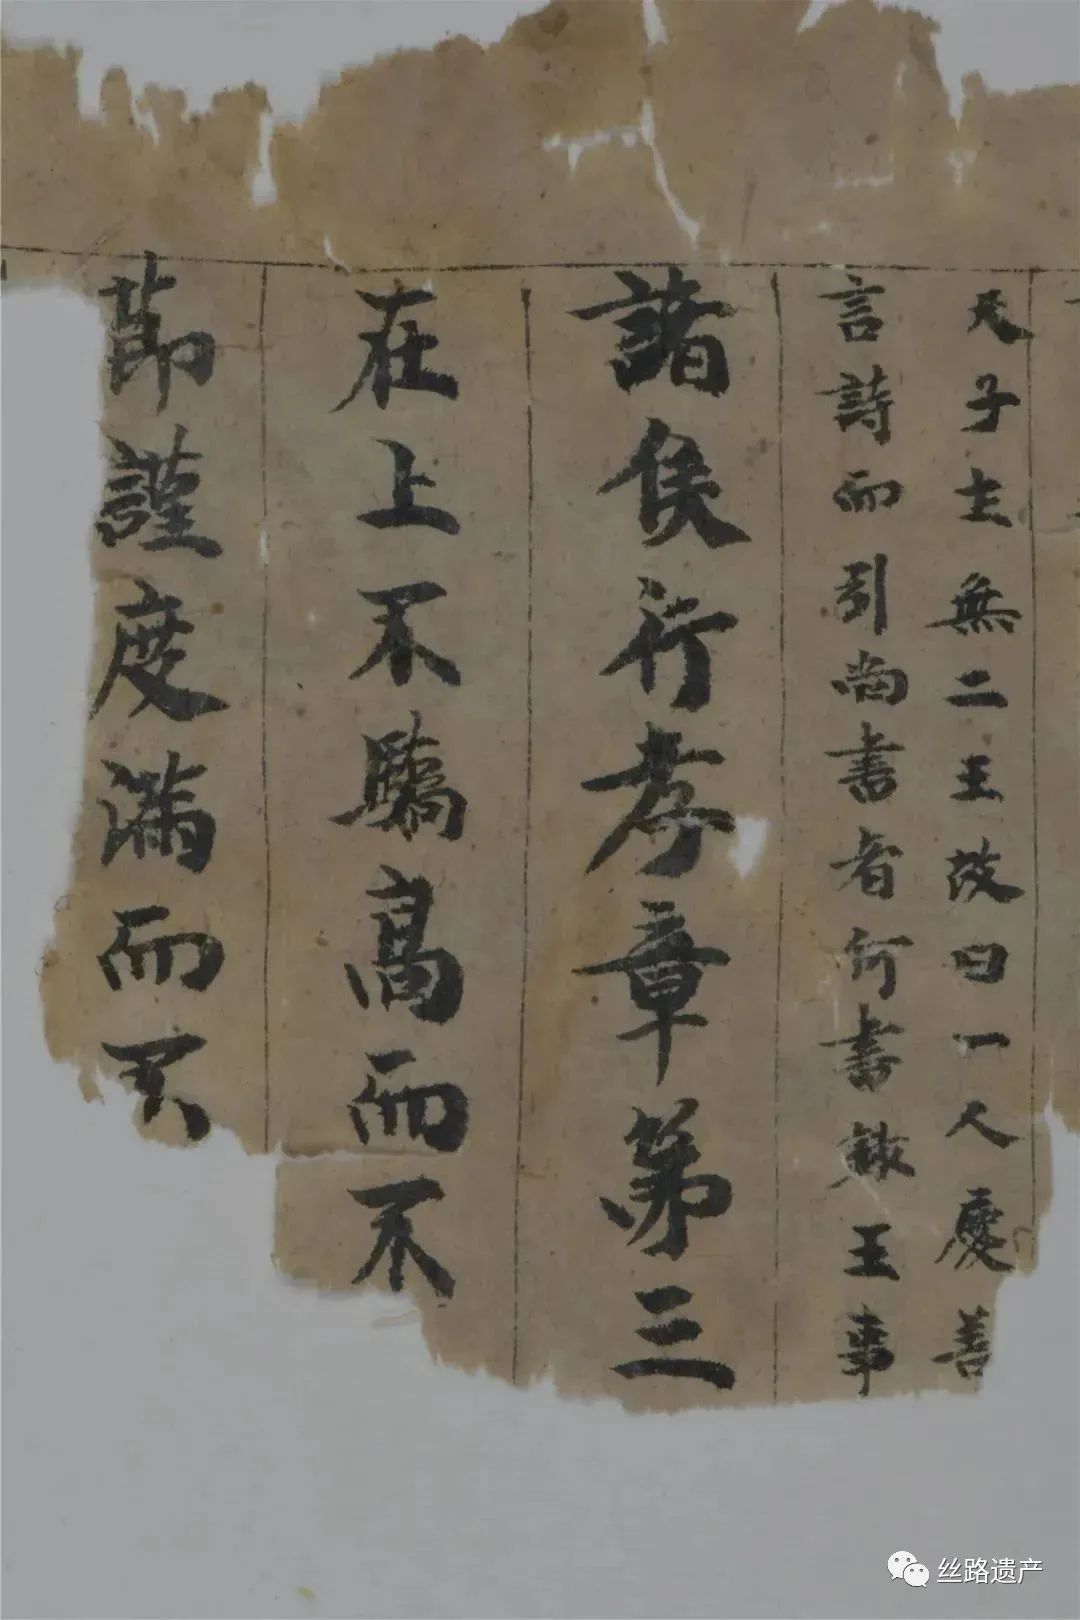 天子主無二王故曰一人慶善
言詩而引尚書者何書録王事
諸侯行孝章第三
在上不驕高而不
節謹度滿而不
丝路遗产